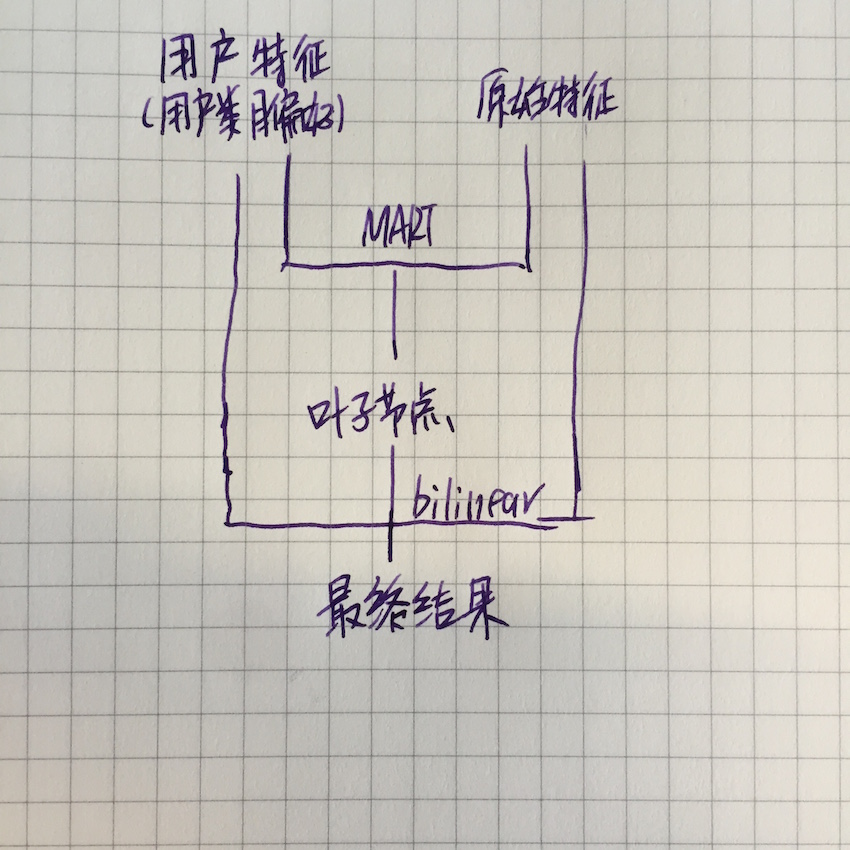 用户特征
(用户类目偏好)
原始特征
MART
叶子节点
bilinear
最终结果